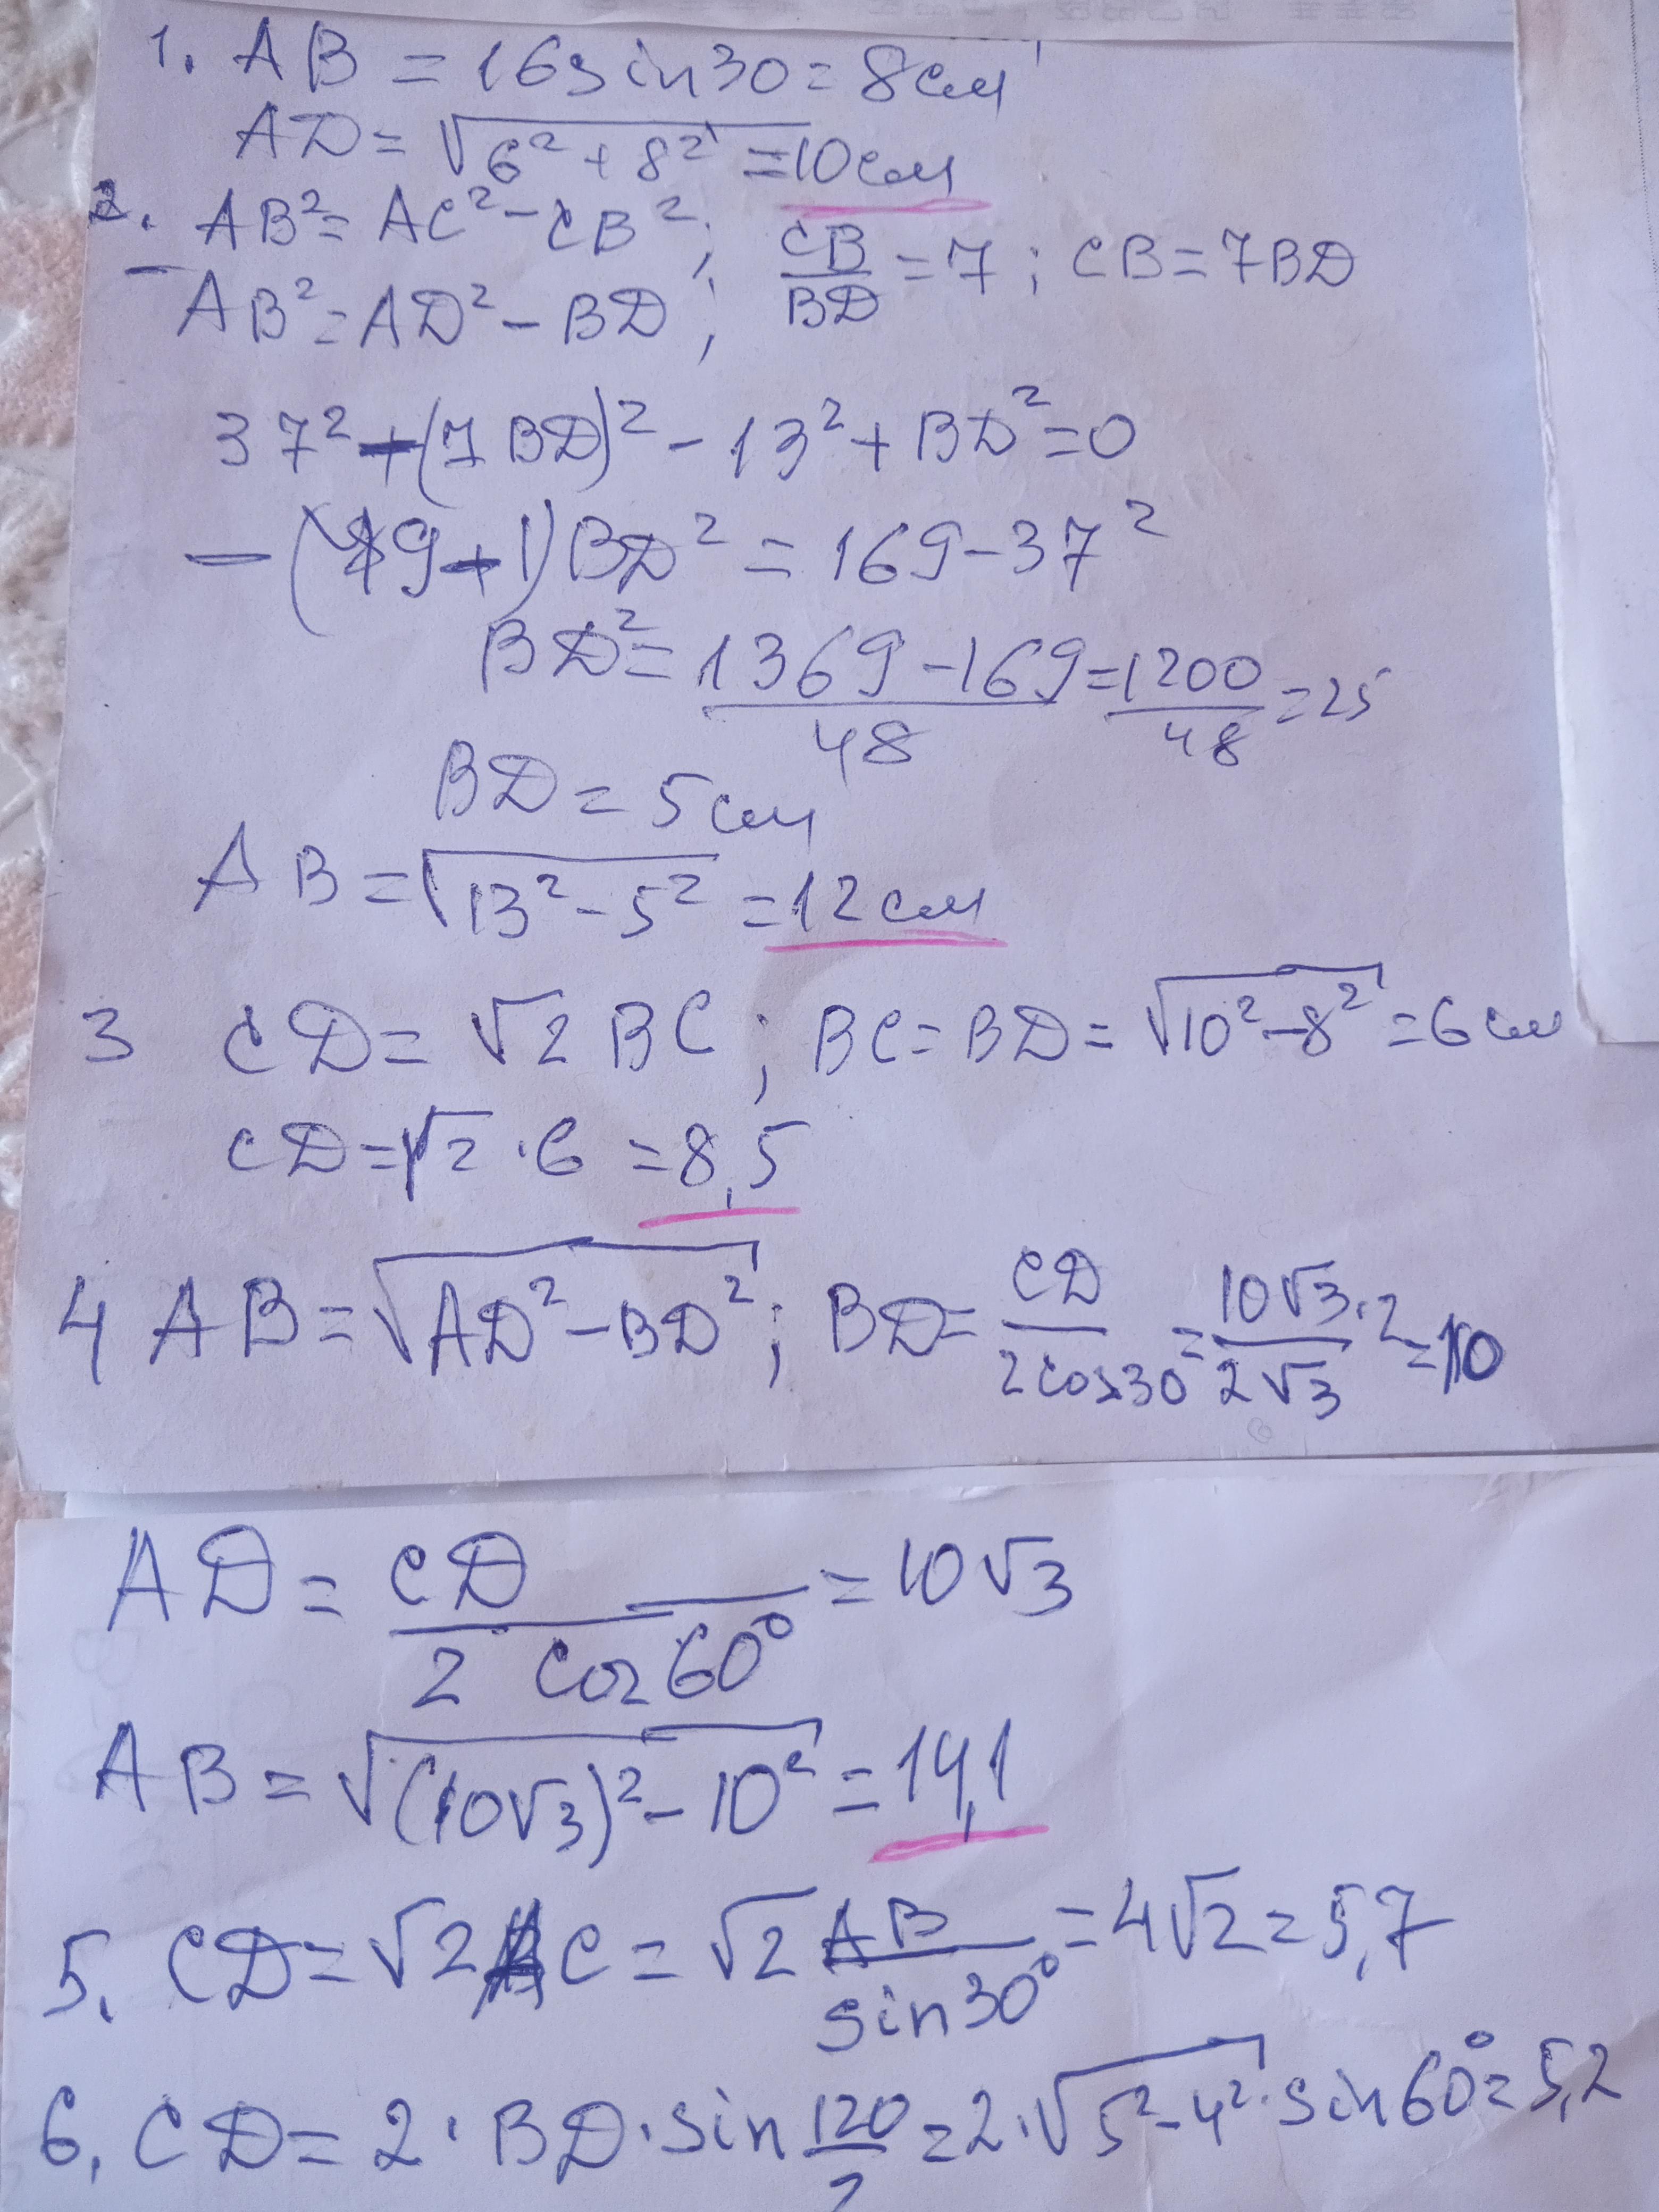 1. AB = 16 sin30 = 8см
AD = √6² + 8² = 10см
2. AB² = AC² - CB²; CB/BD = 7; CB = 7BD
- AB² = AD² - BD;
37² - (7BD)² - 13² + BD² = 0
- (49 - 1)BD² = 169 - 37²
BD² = 1369 - 169/48 = 1200/48 = 25
BD = 5см
AB = √13² - 5² = 12см
3 CD = √2 BC; BC = BD = √10² - 8² = 6см
CD = √2 · 6 = 8,5
4 AB = √AD² - BD²; BD = CD/2cos30 = 10√3·2/2√3 = 10
AD = CD/2 cos60° = 10√3
AB = √(10√3)² - 10² = 14,1
5. CD = √2 AC = √2 AB/sin30° = 4√2 = 5,7
6. CD = 2 · BD · sin 120/2 = 2 · √5² - 4² · sin60° = 5,2